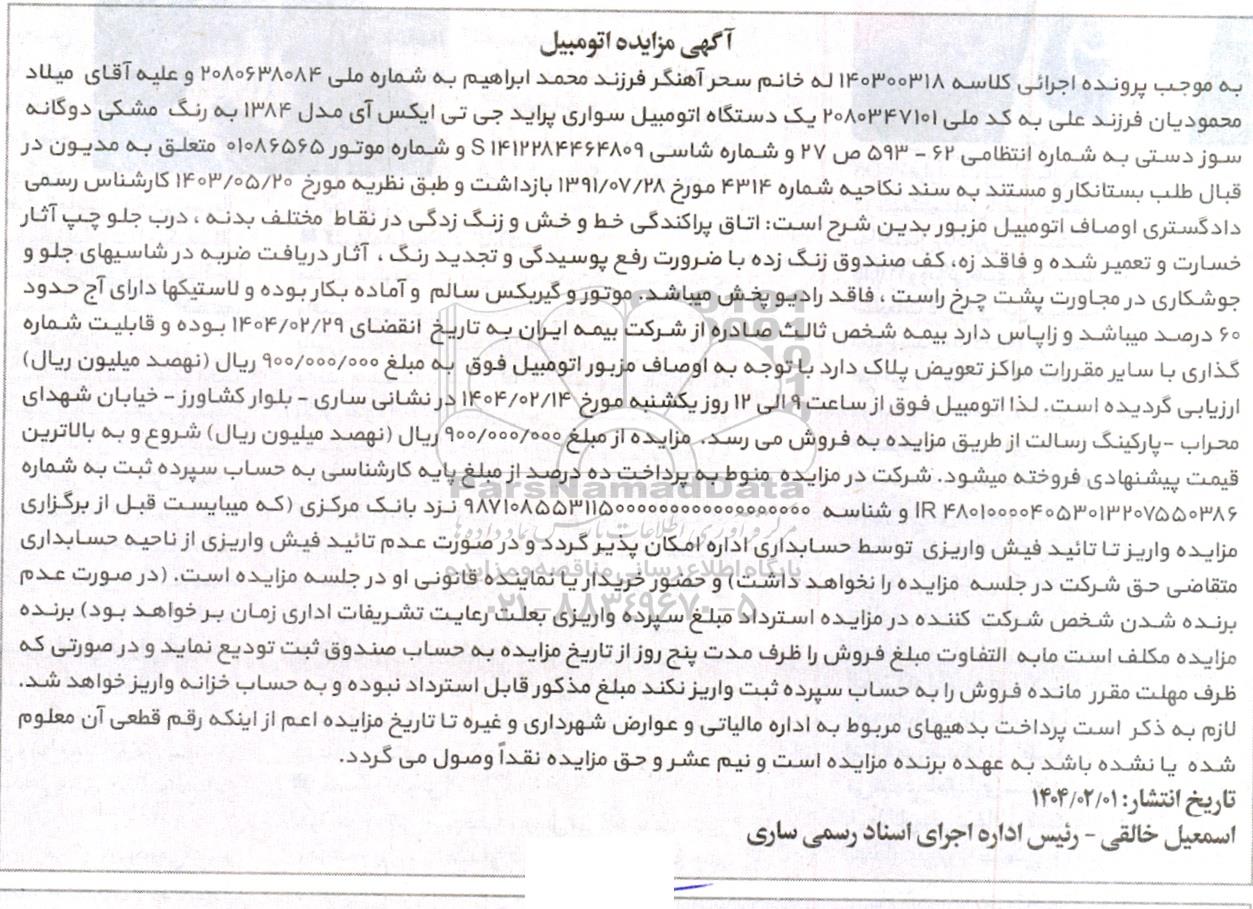 آگهی مزایده اتومبیل
به موجب پرونده اجرائی کلاسه ۱۴۰۳۰۰۳۱۸ له خانم سحر آهنگر فرزند محمد ابراهیم به شماره ملی ۲۰۸۰۶۳۸۰۸۴ و علیه آقای میلاد
محمودیان فرزند علی به کد ملی ۲۰۸۰۳۴۷۱۰۱ یک دستگاه اتومبیل سواری پراید جی تی ایکس آی مدل ۱۳۸۴ به رنگ مشکی دوگانه
سوز دستی به شماره انتظامی ۶۲ – ۵۹۳ ص ۲۷ و شماره شاسی S ۱۴۱۲۲۸۴۴۶۴۸۰۹ و شماره موتور ۰۱۰۸۶۵۶۵ متعلق به مدیون در
قبال طلب بستانکار و مستند به سند نکاحیه شماره ۴۳۱۴ مورخ ۱۳۹۱/۰۷/۲۸ بازداشت و طبق نظریه مورخ ۱۴۰۳/۰۵/۲۰ کارشناس رسمی
دادگستری اوصاف اتومبیل مزبور بدین شرح است: اتاق پراکندگی خط و خش و زنگ زدگی در نقاط مختلف بدنه ، درب جلو چپ آثار
خسارت و تعمیر شده و فاقد زه، کف صندوق زنگ زده با ضرورت رفع پوسیدگی و تجدید رنگ ، آثار دریافت ضربه در شاسیهای جلو و
جوشکاری در مجاورت پشت چرخ راست ، فاقد رادیو پخش میباشد، موتور و گیربکس سالم و آماده بکار بوده و لاستیکها دارای آج حدود
۶۰ درصد میباشد و زاپاس دارد بیمه شخص ثالث صادره از شرکت بیمه ایران به تاریخ انقضای ۱۴۰۴/۰۲/۲۹ بوده و قابلیت شماره
گذاری با سایر مقررات مراکز تعویض پلاک دارد با توجه به اوصاف مزبور اتومبیل فوق به مبلغ ۹۰۰/۰۰۰/۰۰۰ ریال (نهصد میلیون ریال)
ارزیابی گردیده است. لذا اتومبیل فوق از ساعت ۹ الی ۱۲ روز یکشنبه مورخ ۱۴۰۴/۰۲/۱۴ در نشانی ساری – بلوار کشاورز – خیابان شهدای
محراب –پارکینگ رسالت از طریق مزایده به فروش می رسد. مزایده از مبلغ ۹۰۰/۰۰۰/۰۰۰ ریال (نهصد میلیون ریال) شروع و به بالاترین
قیمت پیشنهادی فروخته میشود. شرکت در مزایده منوط به پرداخت ده درصد از مبلغ پایه کارشناسی به حساب سپرده ثبت به شماره
IR ۴۸۰۱۰۰۰۰۴۰۵۳۰۱۳۲۰۷۵۵۰۳۸۶ و شناسه ۹۸۷۱۰۸۵۵۳۱۱۵۰۰۰۰۰۰۰۰۰۰۰۰۰۰۰۰۰ نزد بانک مرکزی (که میبایست قبل از برگزاری
مزایده واریز تا تائید فیش واریزی توسط حسابداری اداره امکان پذیر گردد و در صورت عدم تائید فیش واریزی از ناحیه حسابداری
متقاضی حق شرکت در جلسه مزایده را نخواهد داشت) و حضور خریدار یا نماینده قانونی او در جلسه مزایده است. (در صورت عدم
برنده شدن شخص شرکت کننده در مزایده استرداد مبلغ سپرده واریزی بعلت رعایت تشریفات اداری زمان بر خواهد بود) برنده
مزایده مکلف است مابه التفاوت مبلغ فروش را ظرف مدت پنج روز از تاریخ مزایده به حساب صندوق ثبت تودیع نماید و در صورتی که
ظرف مهلت مقرر مانده فروش را به حساب سپرده ثبت واریز نکند مبلغ مذکور قابل استرداد نبوده و به حساب خزانه واریز خواهد شد.
لازم به ذکر است پرداخت بدهیهای مربوط به اداره مالیاتی و عوارض شهرداری و غیره تا تاریخ مزایده اعم از اینکه رقم قطعی آن معلوم
شده یا نشده باشد به عهده برنده مزایده است و نیم عشر و حق مزایده نقداً وصول می گردد.
تاریخ انتشار: ۱۴۰۴/۰۲/۰۱
اسمعیل خالقی – رئیس اداره اجرای اسناد رسمی ساری
ParsNamadData
مرکز فرآوری اطلاعات پارس نماد داده ها
پایگاه اطلاع رسانی مناقصه و مزایده
۰۲۱–۸۸۳۴۹۶۷۰–۵